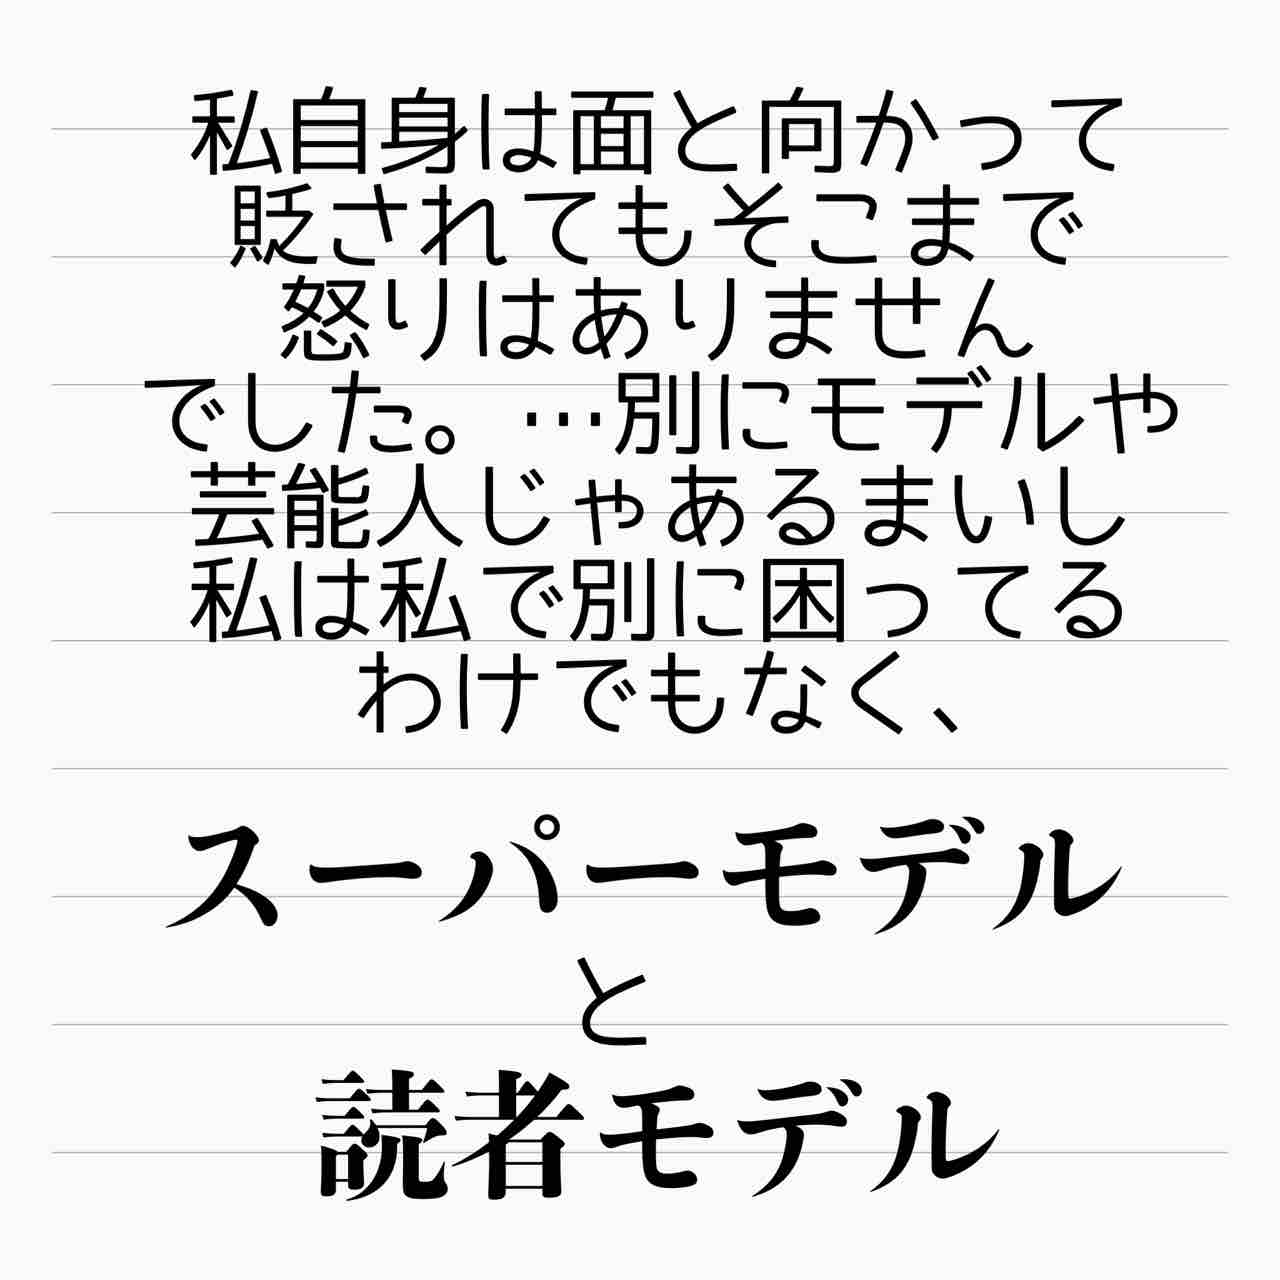 私自身は面と向かって
貶されてもそこまで
怒りはありません
でした。…別にモデルや
芸能人じゃあるまいし
私は私で別に困ってる
わけでもなく、
スーパーモデル
と
読者モデル